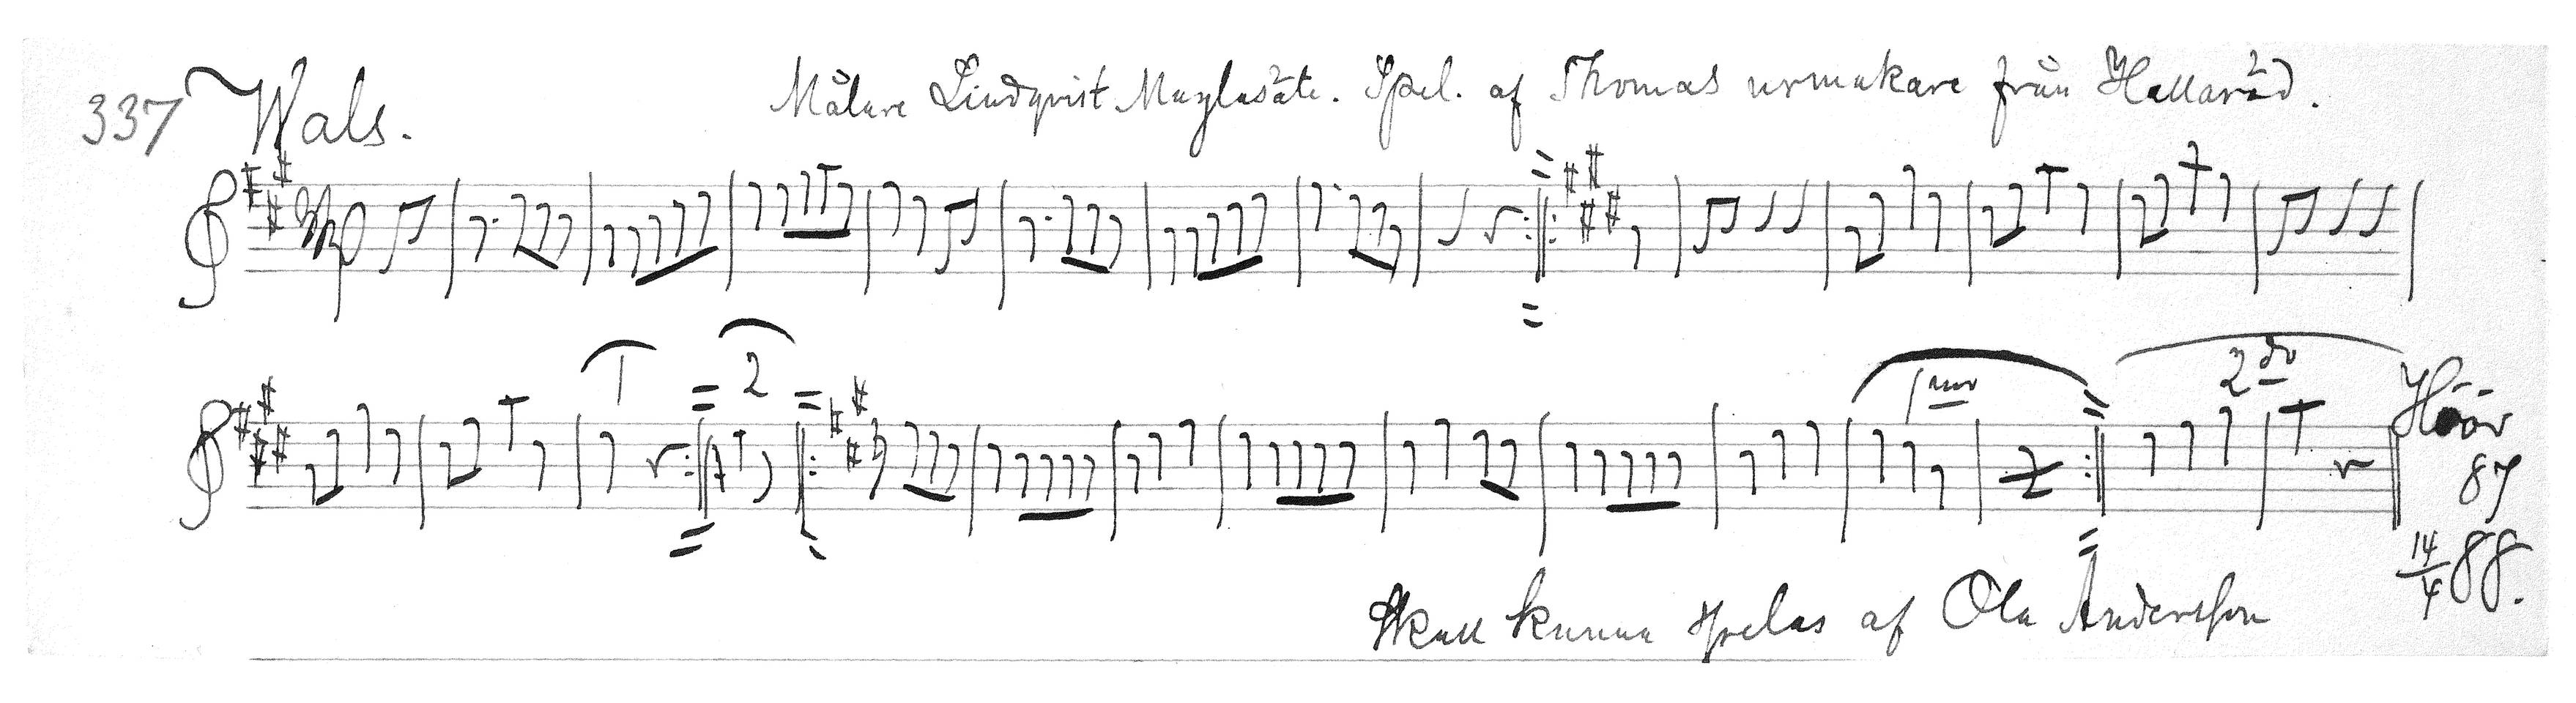 337 Wals.
Målare Lindqvist Maglasäte. Spel. af Thomas urmakare från Hallaröd.
1 2 1mo 2do
Höör
87
14/4 88.
Skall kunna spelas af Ola Andersson